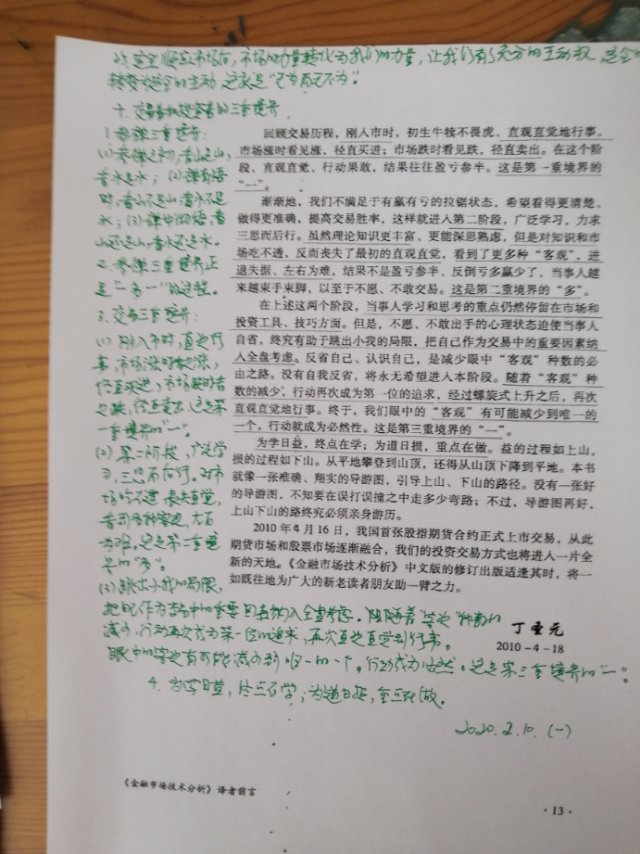 后,市场的力量转化为我们的力量,让我们有了充分的主动权,
转变为完全的主动,这就是“无为而无不为”。
十、交易者和投资者的三重境界
1. 参禅三重境界:
(1) 参禅之初,看山是山,
看水是水;(2) 禅有悟
时,看山不是山,看水不
是水;(3) 禅中彻悟,看
山还是山,看水还是水。
2. 参禅三重境界正
是“一多一”的过程。
3. 交易三重境界:
(1) 刚入市时,直观行
事,市场涨时看见涨,
径直买进;市场跌时看
见跌,径直卖出。这是第
一重境界的“一”。
(2) 第二阶段,广泛学
习,三思而后行。对市
场吃不透,丧失直觉,
看到多种客观,左右
为难。这是第二重境
界的“多”。
(3) 跳出小我的局限,
把自己作为交易中的重要因素纳入全盘考虑。随着“客观”种数的
减少,行动再次成为第一位的追求,再次直观直觉地行事。
眼中的客观有可能减少到唯一的一个,行动成为必然。这是第三重境界的“一”。
4. 为学日益,终点在学;为道日损,重点在做。
2020.2.10.(一)
回顾交易历程,刚入市时,初生牛犊不畏虎、直观直觉地行事,
市场涨时看见涨,径直买进;市场跌时看见跌,径直卖出。在这个阶
段,直观直觉、行动果敢,结果往往盈亏参半。这是第一重境界的
“一”。
渐渐地,我们不满足于有赢有亏的拉锯状态,希望看得更清楚,
做得更准确,提高交易胜率,这样就进入第二阶段,广泛学习,力求
三思而后行。虽然理论知识更丰富、更能深思熟虑,但是对知识和市
场吃不透,反而丧失了最初的直观直觉,看到了更多种“客观”,进
退失据、左右为难,结果不是盈亏参半、反倒亏多赢少了,当事人越
来越束手束脚,以至于不愿、不敢交易。这是第二重境界的“多”。
在上述这两个阶段,当事人学习和思考的重点仍然停留在市场和
投资工具、技巧方面。但是,不愿、不敢出手的心理状态迫使当事人
自省,终究有助于跳出小我的局限,把自己作为交易中的重要因素纳
入全盘考虑。反省自己、认识自己,是减少眼中“客观”种数的必
由之路。没有自我反省,将永无希望进入本阶段。随着“客观”种
数的减少,行动再次成为第一位的追求,经过螺旋式上升之后,再次
直观直觉地行事。终于,我们眼中的“客观”有可能减少到唯一的
一个,行动就成为必然性。这是第三重境界的“一”。
为学日益,终点在学;为道日损,重点在做。益的过程如上山,
损的过程如下山。从平地攀登到山顶,还得从山顶下降到平地。本书
就像一张准确、翔实的导游图,引导上山、下山的路径。没有一张好
的导游图,不知要在误打误撞之中走多少弯路;不过,导游图再好,
上山下山的路终究必须亲身游历。
2010年4月16日,我国首张股指期货合约正式上市交易,从此
期货市场和股票市场逐渐融合,我们的投资交易方式也将进入一片全
新的天地。《金融市场技术分析》中文版的修订出版适逢其时,将一
如既往地为广大的新老读者朋友助一臂之力。
丁圣元
2010-4-18
《金融市场技术分析》译者前言
·13·